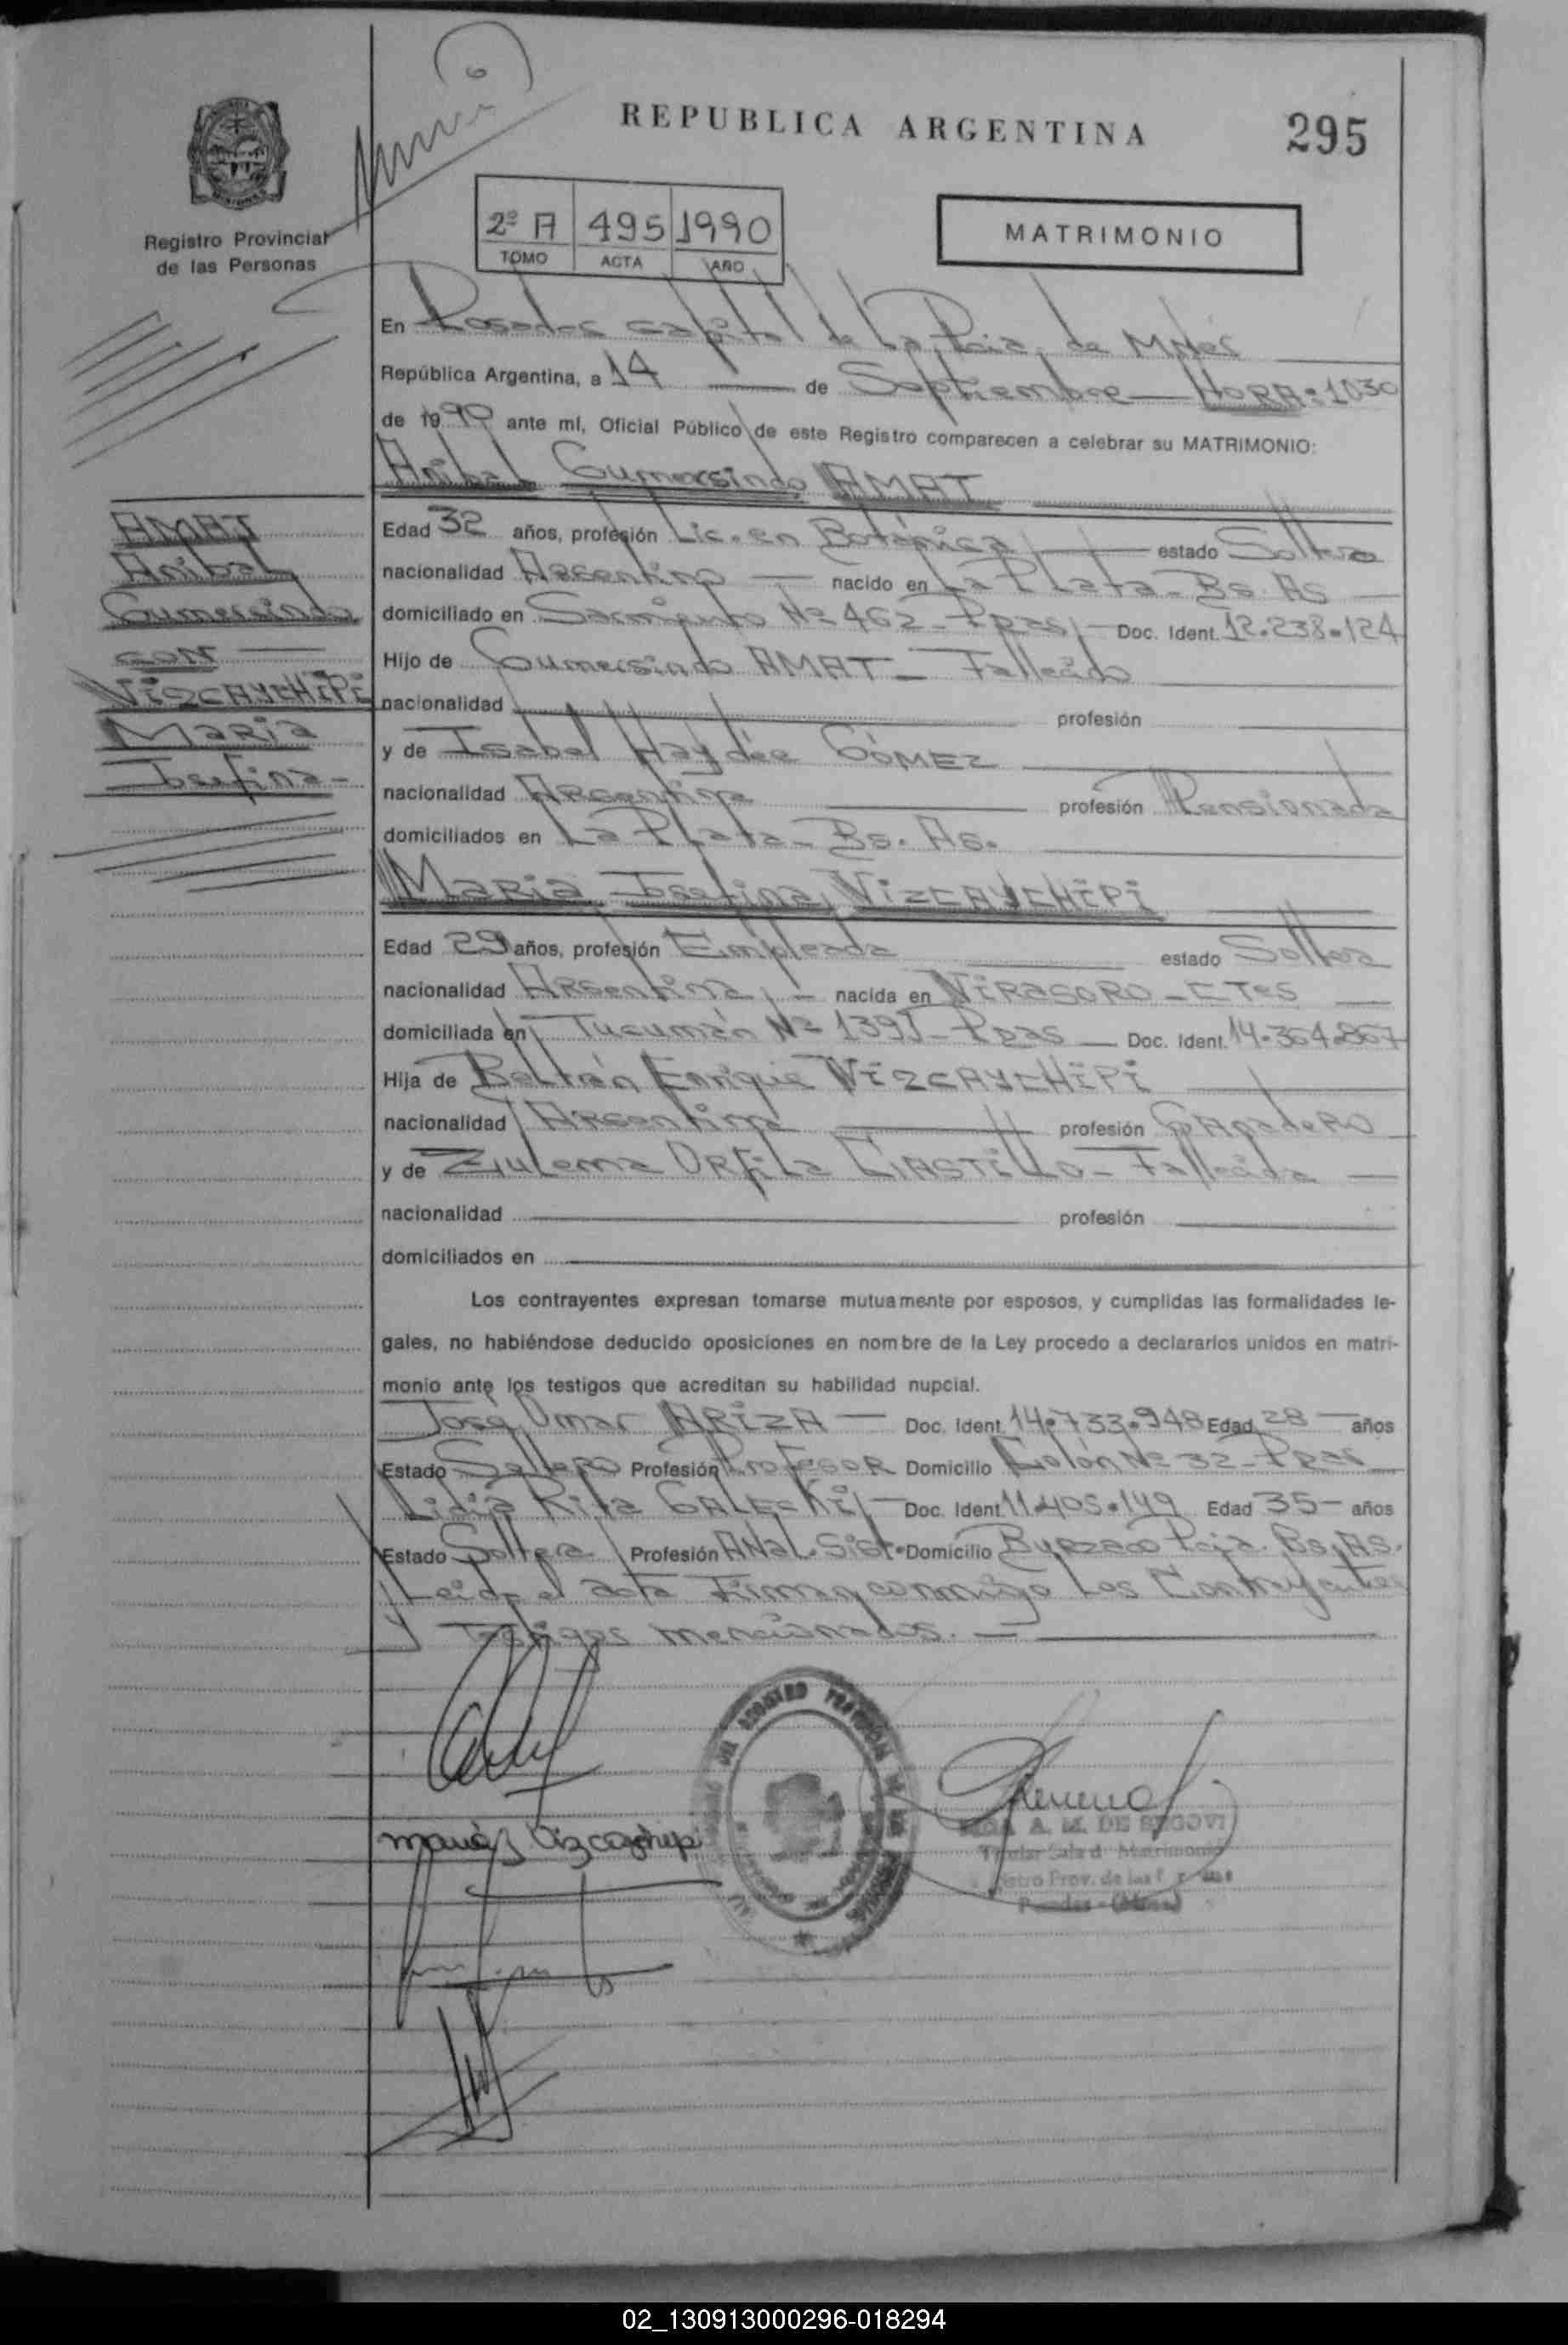 REPUBLICA ARGENTINA
295
Registro Provincial
de las Personas
2º A 495 1990
TOMO ACTA AÑO
MATRIMONIO
En Posadas capital de La Pcia. de Mnes
República Argentina, a 14 de Septiembre HORA: 1030
de 1990 ante mí, Oficial Público de este Registro comparecen a celebrar su MATRIMONIO:
Anibal Gumersindo AMAT
AMAT
Anibal
Gumersindo
CON
VIZCAYCHIPI
Maria
Josefina -
Edad 32 años, profesión Lic. en Botánica estado Soltero
nacionalidad Argentino nacido en La Plata - Bs. As
domiciliado en Sarmiento Nº 462 - Pdas Doc. Ident. 12.238.124
Hijo de Gumersindo AMAT - Fallecido
nacionalidad profesión
y de Isabel Haydée GÓMEZ
nacionalidad Argentina profesión Pensionada
domiciliados en La Plata - Bs. As.
Maria Josefina VIZCAYCHIPI
Edad 29 años, profesión Empleada estado Soltera
nacionalidad Argentina nacida en VIRASORO - CTES
domiciliada en Tucumán Nº 1391 - Pdas Doc. Ident. 14.364.867
Hija de Beltrán Enrique VIZCAYCHIPI
nacionalidad Argentina profesión Ganadero
y de Zulema ORFILA CASTILLO - Fallecida
nacionalidad profesión
domiciliados en
Los contrayentes expresan tomarse mutuamente por esposos, y cumplidas las formalidades le-
gales, no habiéndose deducido oposiciones en nombre de la Ley procedo a declararlos unidos en matri-
monio ante los testigos que acreditan su habilidad nupcial.
José Omar ARIZA Doc. Ident. 14.733.948 Edad 28 años
Estado Soltero Profesión Profesor Domicilio Colón Nº 32 - Pdas
Lidia Rita GALECKI Doc. Ident. 11.405.149 Edad 35 años
Estado Soltera Profesión Anal. Sist. Domicilio Burzaco Pcia. Bs. As.
Leida el acta Firman conmigo Los Contrayentes
y Testigos mencionados.
maria J Vizcaychipi
A. M. DE SEGOVI
Titular Sala d Matrimonio
Prov. de las
02_130913000296-018294